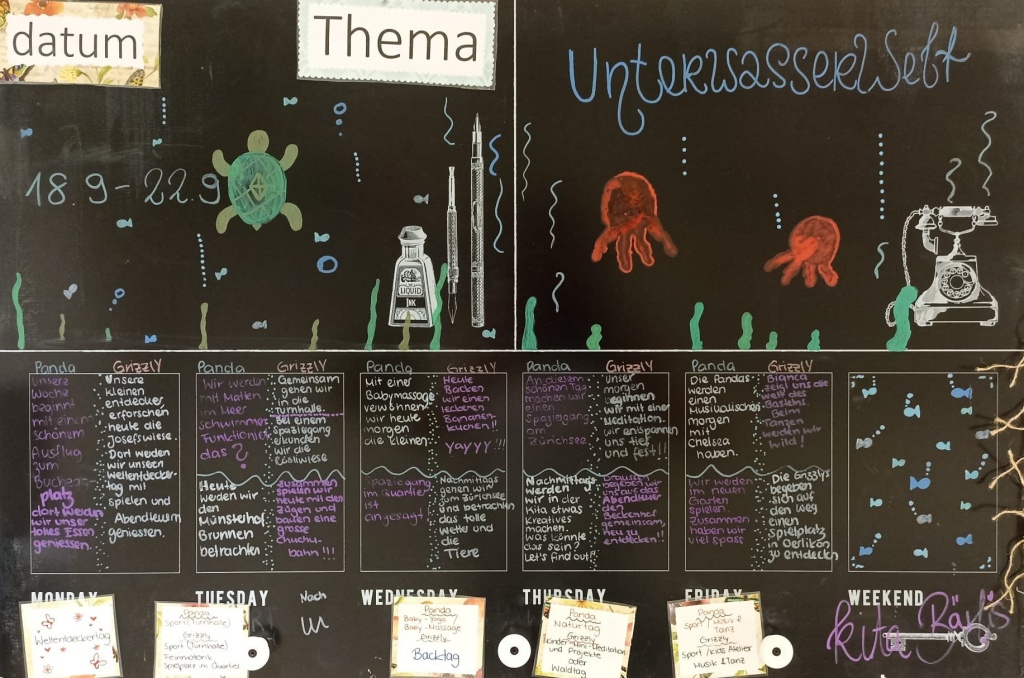 datum
Thema
UnterwasserWelt
18.9 - 22.9
LIQUID
INK
Panda
Grizzly
unsere
woche
beginnt
mit einem
schönem
Ausflug
zum
Buchegg
platz
dort werden
wir unser
tolles Essen
geniessen.
Unsere
kleinen
entdecker
erforschen
heute die
Josefswiese.
Dort weden
wir unseren
Weltentdecker
tag mit
spielen und
Abendteuern
geniessen.
Panda
Grizzly
Wir werden
mit Matten
im Meer
schwimmen
Funktioniert
das ?
Gemeinsam
gehen wir
in die
Turnhalle.
Bei einem
Spaziegang
erkunden
wir die
Röslïwiese
Heute
weden wir
den
Münsterhof
Brunnen
betrachten
zusammen
spielen wir
heute mit den
zügen und
bauen eine
grosse
chuchu-
bahn !!!
Panda
Grizzly
Mit einer
Babymassage
verwöhnen
wir heute
morgen
die kleinen
Heute
Backen
wir einen
leckeren
Bananen
kuchen!!
YAYYY !!!
Spaziegang
im Quartier
ist
angesagt
Nachmittags
gehen wir
zum zürichsee
und betrachten
das tolle
wetter und
die
Tiere
Panda
Grizzly
An diesem
schönen Tag
machen wir
einen
Spaziegang
am
Zürichsee
unser
morgen
beginnen
wir mit einer
Meditation
wir entspannen
uns tief
und fest!!
Nachmittags
werden
wir in der
Kita etwas
Kreatives
machen.
was könnte
das sein?
Let's find out!
Draussen
begeben wir
uns auf das
Abendteuer
den
Beckenhof
gemeinsam
neu zu
entdecken!!
Panda
Grizzly
Die Pandas
werden
einen
Musikalischen
morgen
mit
Chelsea
haben.
Bianca
zeigt uns die
welt des
Bastelns
Beim
Tanzen
werden wir
Wild !
Wir weden
im neuen
Garten
spielen
Zusammen
haben wir
viel spass
Die Grizzlys
begeben
sich auf
den weg
einen
spielplatz
in Oerlikon
zu entdecken
MONDAY
TUESDAY
WEDNESDAY
THURSDAY
FRIDAY
WEEKEND
Weltentdeckertag
Panda
Sport (Turnhalle)
Grizzly
Sport (Turnhalle)
Feinmotorik
Spielplatz im Quartier
Nach
Panda
Baby-Yoga
Baby-Massage
Grizzly
Backtag
Panda
Naturtag
Grizzly
Kinder-Mini-Meditation
und Projekte
oder
Waldtag
Panda
Sport / Musik &
Tanz
Grizzly
Sport / kids Atelier
Musik & Tanz
kita Bärlis